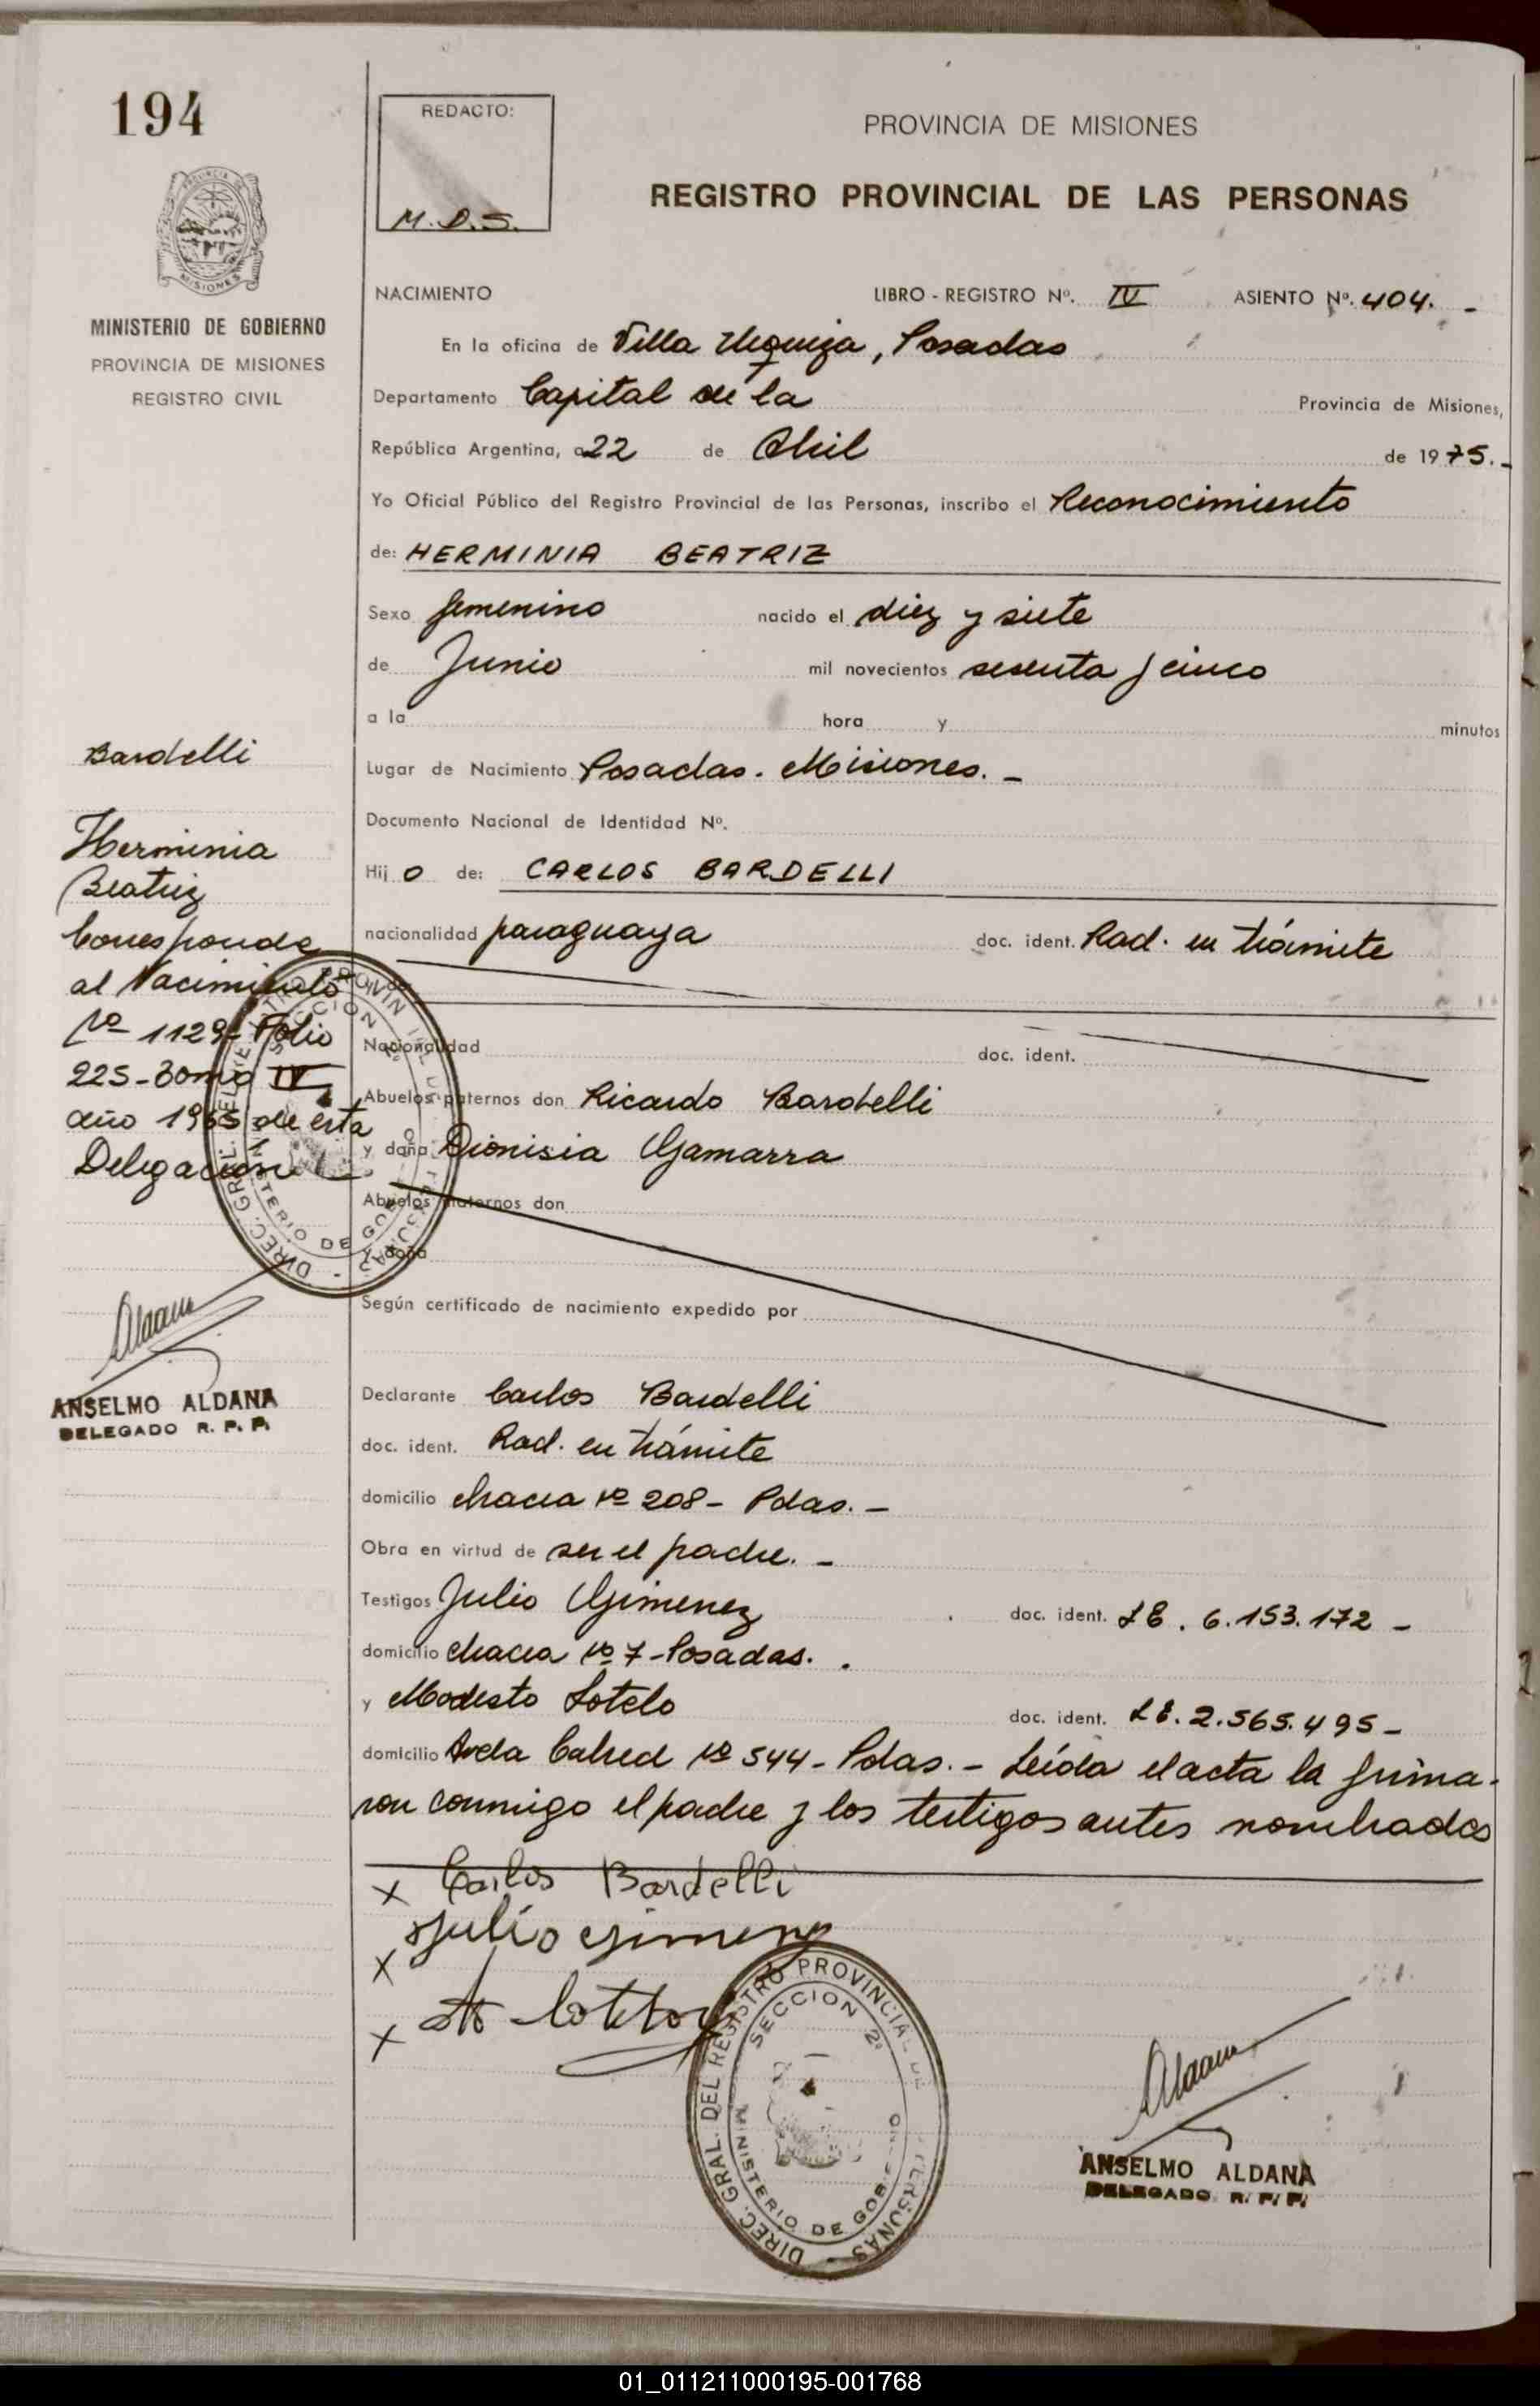 194
REDACTO:
M.D.S.
PROVINCIA DE MISIONES
REGISTRO PROVINCIAL DE LAS PERSONAS
MINISTERIO DE GOBIERNO
PROVINCIA DE MISIONES
REGISTRO CIVIL
NACIMIENTO LIBRO - REGISTRO Nº. IV ASIENTO Nº. 404. -
En la oficina de Villa Urquiza, Posadas
Departamento Capital de la Provincia de Misiones,
República Argentina, a 22 de Abril de 1975.-
Yo Oficial Público del Registro Provincial de las Personas, inscribo el Reconocimiento
de: HERMINIA BEATRIZ
Sexo femenino nacido el diez y siete
de Junio mil novecientos sesenta y cinco
a la hora y minutos
Lugar de Nacimiento Posadas. Misiones. -
Documento Nacional de Identidad Nº.
Hij o de: CARLOS BARDELLI
nacionalidad paraguaya doc. ident. Rad. en trámite
Nacionalidad doc. ident.
Abuelos paternos don Ricardo Bardelli
y doña Dionisia Gamarra
Abuelos maternos don
y doña
Según certificado de nacimiento expedido por
Declarante Carlos Bardelli
doc. ident. Rad. en trámite
domicilio Chacra Nº 208 - Pdas. -
Obra en virtud de ser el padre. -
Testigos Julio Gimenez doc. ident. LE. 6.153.172 -
domicilio Chacra Nº 7 - Posadas.
y Modesto Sotelo doc. ident. LE. 2.565.495 -
domicilio Avda Cabred Nº 544 - Pdas. - Leída el acta la firma-
ron conmigo el padre y los testigos antes nombrados
x Carlos Bardelli
x Julio Gimenez
x
Bardelli
Herminia
Beatriz
Corresponde
al Nacimiento
Nº 1129- Folio
225 - Tomo IV
año 1965 de esta
Delegación
DIREC. GRAL. DEL REGISTRO PROVINCIAL DE LAS PERSONAS
SECCION 2ª
MINISTERIO DE GOBIERNO
ANSELMO ALDANA
DELEGADO R. P. P.
DIREC. GRAL. DEL REGISTRO PROVINCIAL DE LAS PERSONAS
SECCION 2ª
MINISTERIO DE GOBIERNO
ANSELMO ALDANA
DELEGADO R. P. P.
01_011211000195-001768